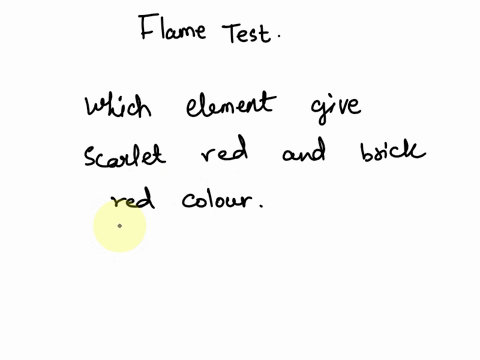 Flame Test.
Which element give
scarlet red and brick
red colour.